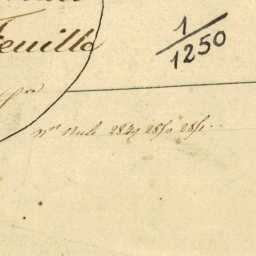 Feuille
1/1250
nos nuls 2849 2850 2851..